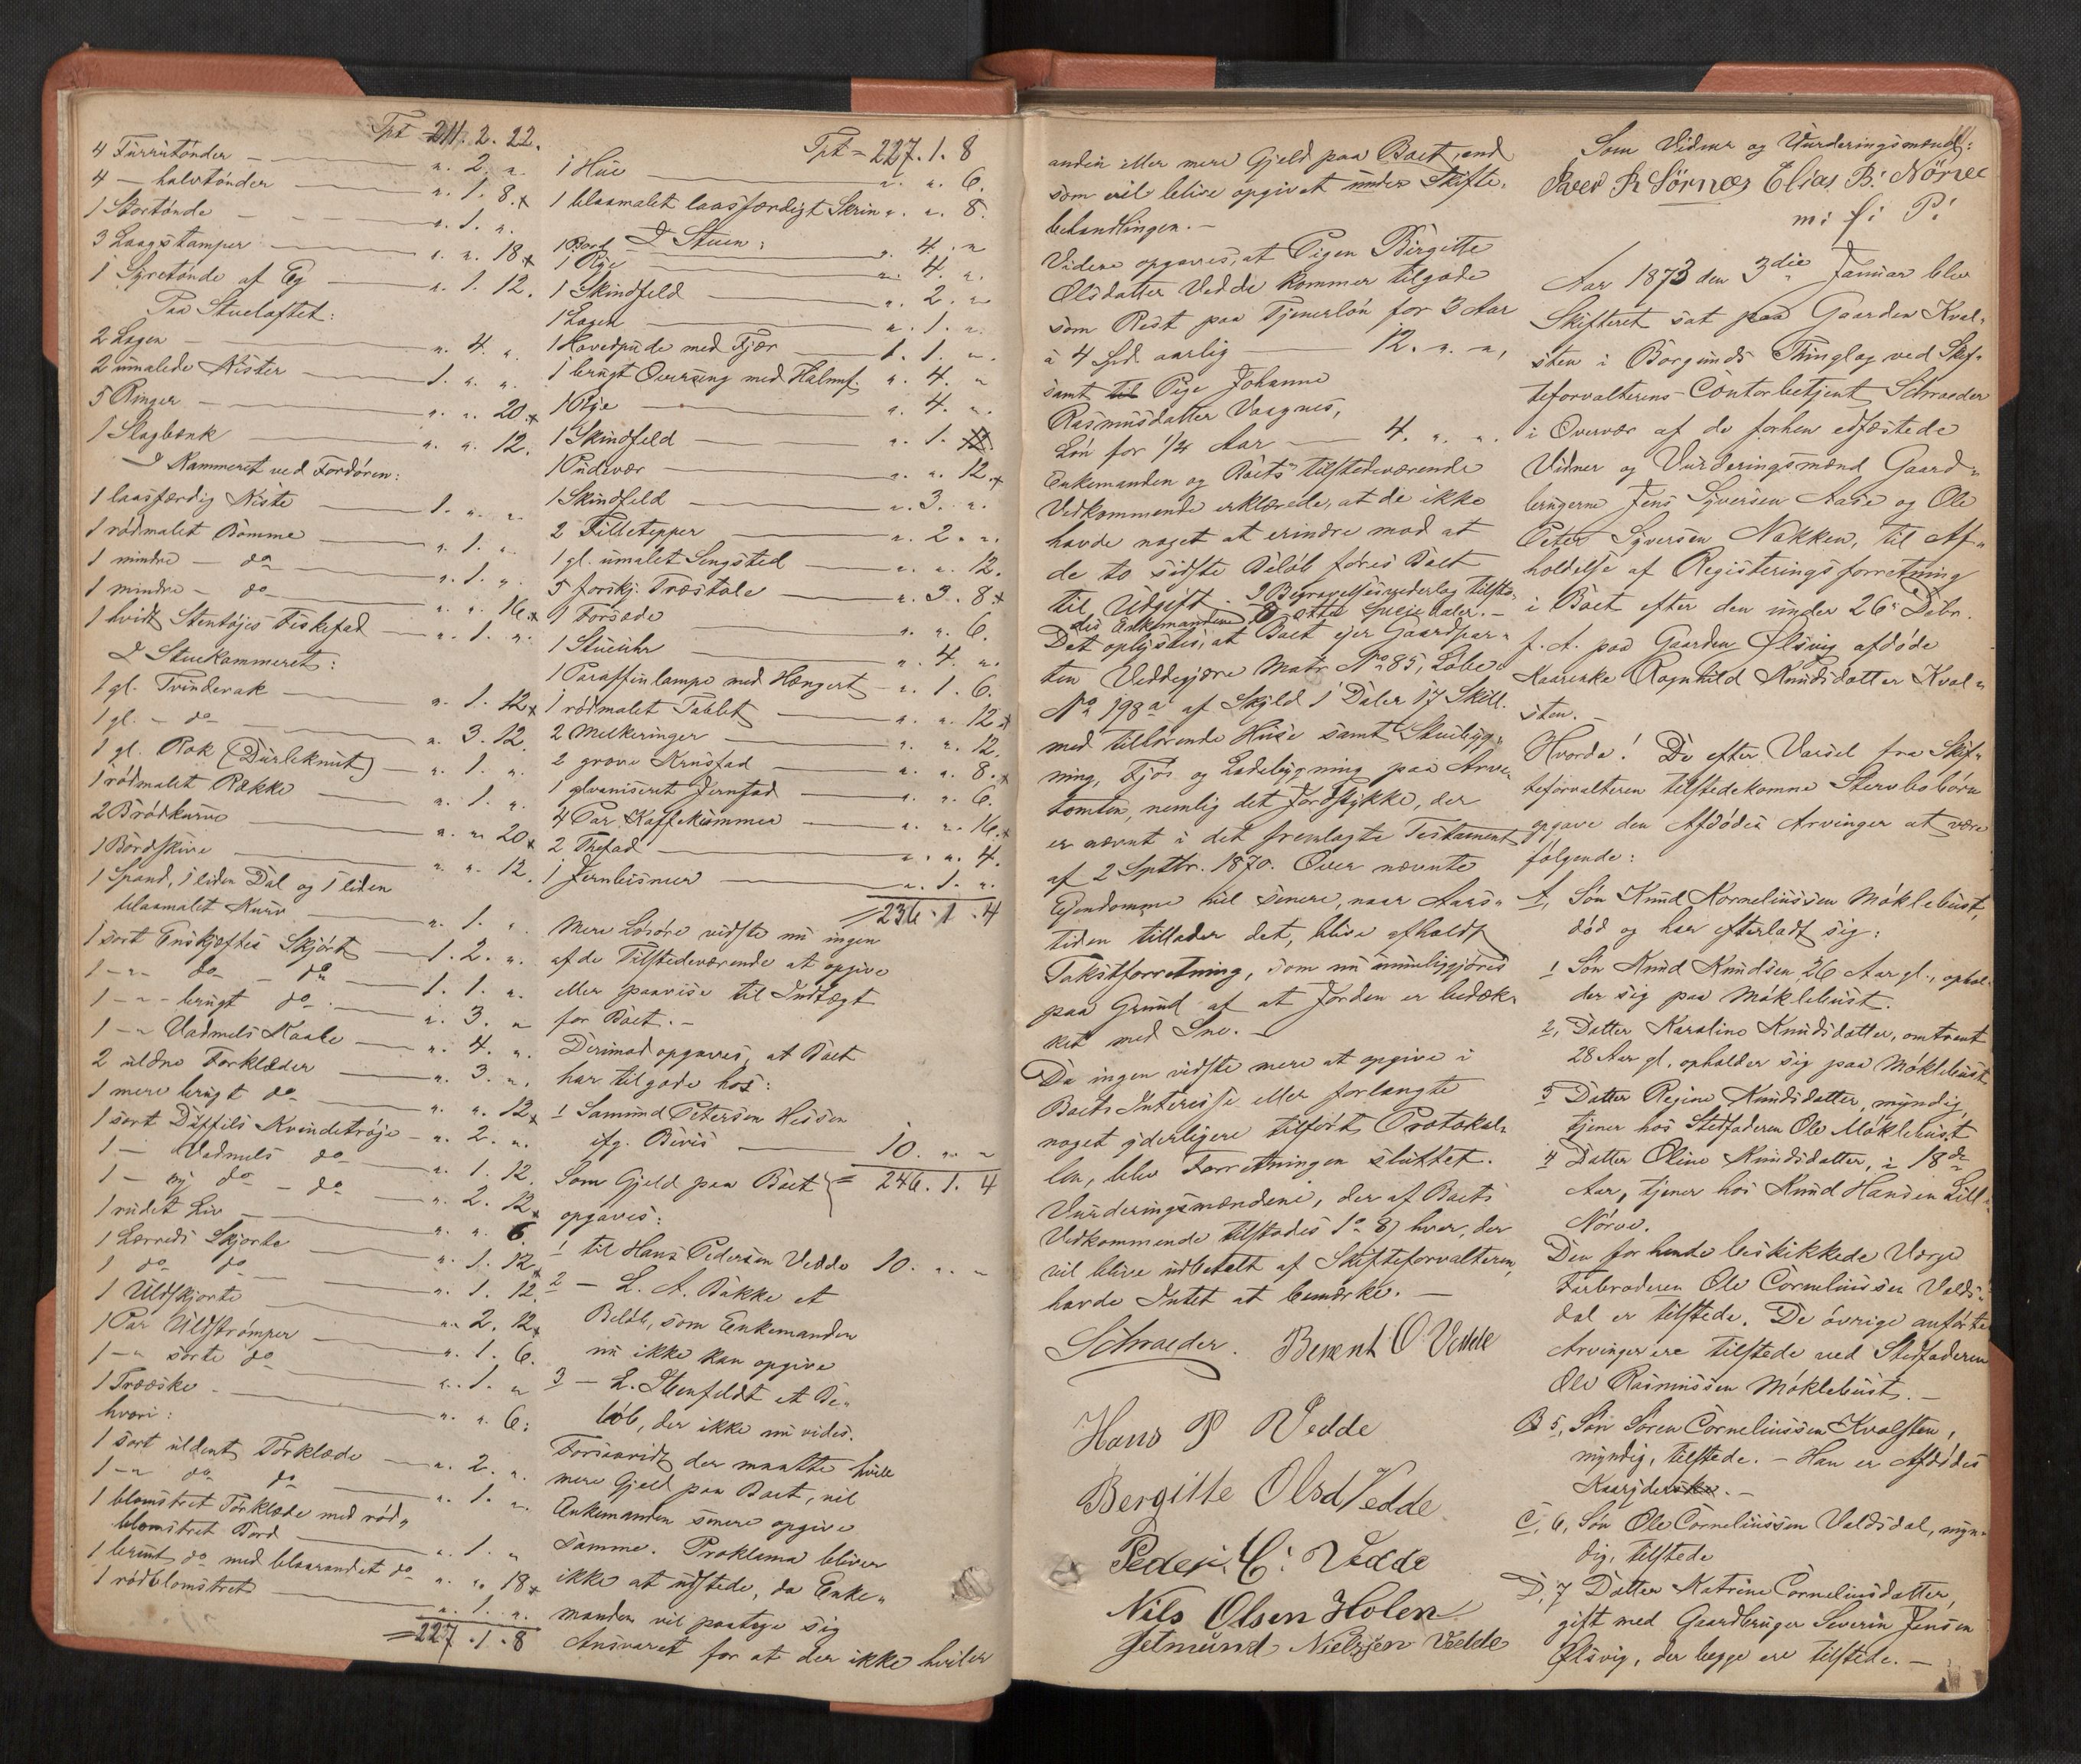 Tpt 211. 2. 22.
4 Furutönder — ". 2. ".
4 — halvtönder — ". 1. 8.
1 Stortönde — ". 1. ".
3 Laagstamper — ". ". 18
1 Syretönde af Eg — ". 1. 12.
Paa Stueloftet:
2 Lagen — ". 4. ".
2 umalede Kister — 1. ". ".
5 Ringer — ". ". 20
1 Slagbænk — ". ". 12.
I Kammeret ved Fordören:
1 laasfærdig Kiste — 1. ". ".
1 rödmalet Bomme — ". 1. ".
1 mindre — do — ". 1. ".
1 mindre — do — ". ". 16
1 hvidt Stentøies Fiskefad — ". 1. ".
I Stuekammeret:
1 gl. Tvinderok — ". 1. 12
1 gl. — do — ". 3. 12.
1 gl. Rok — ". 1. ".
1 rödmalet Række — ". 1. ".
2 Brödkurve — ". ". 20
1 Bordskive — ". ". 12.
1 Spand, 1 liden Dal og 1 liden
blaamalet Kurv — ". 1. ".
1 sort Enskjæftes Skjört — 1. 2. ".
1 — " — do — do — 1. 1. ".
1 — " — brugt do — ". 3. "
1 — " Vadmels Kaabe — ". 4. ".
2 uldne Forklæder — ". 3. ".
1 mere brugt do — ". ". 12
1 sort Düffels Kvindetröje — ". 2. ".
1 — Vadmels do — ". 1. 12.
1 — ny do — do — ". 2. 12
1 rudet Liv — ". ". 6.
1 Lærreds Skjorte — ". 1. 12
1 do do — ". 1. 12.
1 Uldskjorte — ". 2. 12
1 Par Uldströmper — ". 1. 6.
1 — " sorte do — ". 1. "
1 Trææske — ". ". 6.
hvori:
1 sort uldent Törklæde — ". 2. ".
1 — " do do — ". 1. ".
1 blomstret Törklæde med röd
blomstret Bord — ". 1. "
1 brunt do med blaarandet do — ". ". 18
1 rödblomstret — ". 1. ".
= 227. 1. 8
Tpt = 227. 1. 8
1 Hue — ". ". 6.
1 blaamalet laasfærdigt Skrin ". ". 8.
I Stuen:
1 Bord — ". 4. "
1 Rye — ". 4. ".
1 Skindfeld — ". 2. "
1 Lagen — ". 1. ".
1 Hovedpude med Fjær — 1. 1. ".
1 brugt Overseng med Halmf. ". 4. "
1 Rye — ". 4. ".
1 Skindfeld — ". 1.
1 Pudevær — ". ". 12
1 Skindfeld — ". 3. ".
2 Filletepper — ". 2. ".
1 gl. umalet Sengsted — ". ". 12.
5 forskj. Træstole — ". 3. 8
1 Forsæde — ". ". 6.
1 Stueuhr — ". 4. ".
1 Paraffinlampe med Hængert — ". 1. 6.
1 rödmalet Tablet — ". ". 12
2 Melkeringer — ". ". 12.
2 grove Krusfad — ". ". 8.
1 glvaniseret Jernfad — ". ". 6.
4 Par Kaffekummer — ". ". 16
2 Thefad — ". ". 4.
1 Jernbismer — ". 1. ".
= 236. 1. 4
Mere Lösöre vidste nu ingen
af de Tilstedeværende at opgive
eller paavise til Indtægt
for Boet. —
Derimod opgaves, at Boet
har tilgode hos:
1 Samund Petersen Hessen
ifg. Bevis — 10. " "
Som Gjeld paa Boet = 246. 1. 4
opgaves:
1 til Hans Pedersen Vedde 10. " "
2 — L. A. Bakke et
Belöb, som Enkemanden
nu ikke kan opgive
3 — L. Ibenfeldt et Be-
löb, der ikke nu vides.
Forsaavidt der maatte hvile
mere Gjeld paa Boet, vil
Enkemanden senere opgive
samme. Proklama bliver
ikke at udstede, da Enke-
manden vil paatage sig
Ansvaret for at der ikke hviler
anden eller mere Gjeld paa Boet, end
som vil blive opgivet under Skifte-
behandlingen. —
Videre opgaves, at Pigen Birgitte
Olsdatter Vedde kommer tilgode
som Rest paa Tjenerlön for 3 Aar
à 4 Spd. aarlig — 12. ". ",
samt til Pige Johanne
Rasmusdatter Vaagnes,
Lön for 1/4 Aar — 4. ". ".
Enkemanden og Boets tilstedeværende
Vedkommende erklærede, at de ikke
havde noget at erindre mod at
de to sidste Belöb föres Boet
til Udgift. I Begravelsesvederlag tilsto-
des Enkemanden 8 otte Speciedaler. —
Det oplystes, at Boet ejer Gaardpar-
ten Veddegjære Matr. No 85, Löbe
No 198a af Skyld 1 Daler 17 Skill.
med tilhörende Huse samt Stuebyg-
ning, Fjös og Ladebygning paa Arve-
tomten, nemlig det Jordstykke, der
er nævnt i det fremlagte Testament
af 2 Septbr. 1870. Over nævnte
Ejendomme vil senere, naar Aars-
tiden tillader det, blive afholdt
Takstforretning, som nu umuliggjöres
paa Grund af at Jorden er bedæk-
ket med Sne. —
Da ingen vidste mere at opgive i
Boets Interesse eller forlangte
noget yderligere tilfört Protokol-
len, blev Forretningen sluttet.
Vurderingsmændene, der af Boets
Vedkommende tilstodes 1 8 hver, der
vil blive udbetalt af Skifteforvalteren,
havde Intet at bemærke. —
Schroeder. Berent O Vedde
Hans P Vedde
Bergitte Olsd Vedde
Peder C: Vedde
Nils Olsen Holen
Jetmund Nielssen Vedde
Som Vidner og Vurderingsmænd:
Iver R Sörnæs Elias B: Nörve
m: f: P:
Aar 1873 den 3die Januar blev
Skifteret sat paa Gaarden Kval-
sten i Borgunds Thinglag ved Skif-
teforvalterens Contorbetjent Schroeder
i Overvær af de forhen edfæstede
Vidner og Vurderingsmænd Gaard-
brugerne Jens Syversen Aase og Ole
Peter Syversen Nakken, til Af-
holdelse af Registeringsforretning
i Boet efter den under 26 Debr.
f. A. paa Gaarden Ølsvig afdöde
Kaarenke Ragnhild Knudsdatter Kval-
sten. —
Hvorda! De efter Varsel fra Skif-
teforvalteren tilstedekomne Stervbobörn
opgave den Afdödes Arvinger at være
fölgende:
A, Sön Knud Korneliussen Möklebust,
död og har efterladt sig:
1 Sön Knud Knudsen, 26 Aar gl., ophol-
der sig paa Möklebust.
2, Datter Karoline Knudsdatter, omtrent
28 Aar gl., opholder sig paa Möklebust
3 Datter Regine Knudsdatter, myndig,
tjener hos Stedfaderen Ole Möklebust
4 Datter Oline Knudsdatter, i 18de
Aar, tjener hos Knud Hansen Lill-
Nörve.
Den for hende beskikkede Værge
Farbroderen Ole Corneliussen Valds-
dal er tilstede. De övrige anförte
Arvinger ere tilstede ved Stedfaderen
Ole Rasmussen Möklebust. —
B 5, Sön Sören Corneliussen Kvalsten,
myndig, tilstede. — Han er Afdödes
Kaaryder. —
C, 6, Sön Ole Corneliussen Valdsdal, myn-
dig, tilstede
D, 7 Datter Katrine Corneliusdatter,
gift med Gaardbruger Severin Jensen
Ølsvig, der begge ere tilstede. —